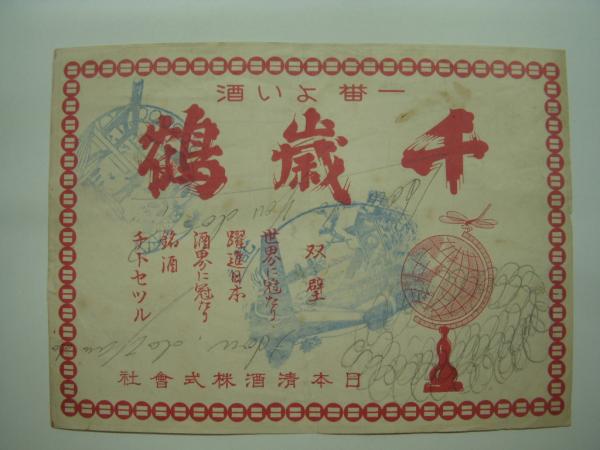 一番よい酒
千歳鶴
双璧
世界に冠たり
躍進日本
酒界に冠たり
銘酒
チトセツル
日本清酒株式會社
you do